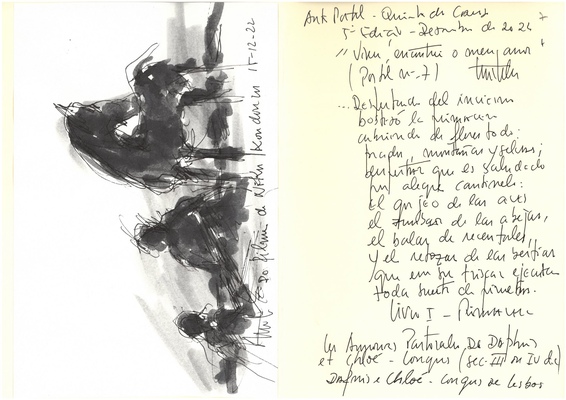 Do filme de Nków London 15-12-22
Arte Postal - Quinta da Cruz
5ª Edição - Dezembro de 2022
"Vivi, encontrei o meu amor"
(Postal nº 7)
...Despertada del invierno
bostezó la primavera
cubriendo de flores todo:
prados, montañas y selvas;
despertar que es saludado
por alegre cantinela:
el gorjeo de las aves
el zumbar de las abejas,
el balar de recentales,
y el retozar de las bestias
que en su triscar ejecutan
toda suerte de piruetas.
Livro I - Primavera
Les Amours Pastorales De Daphnis
et Chloé - Longus (sec. III ou IV dc)
Daphnis e Chloé - Longus de Lesbos